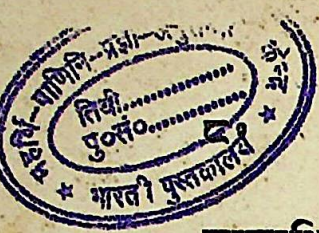 महर्षि-पाणिनि-प्रज्ञा-
तिथी..................
पु०सं०..................
भारती पुस्तकालय